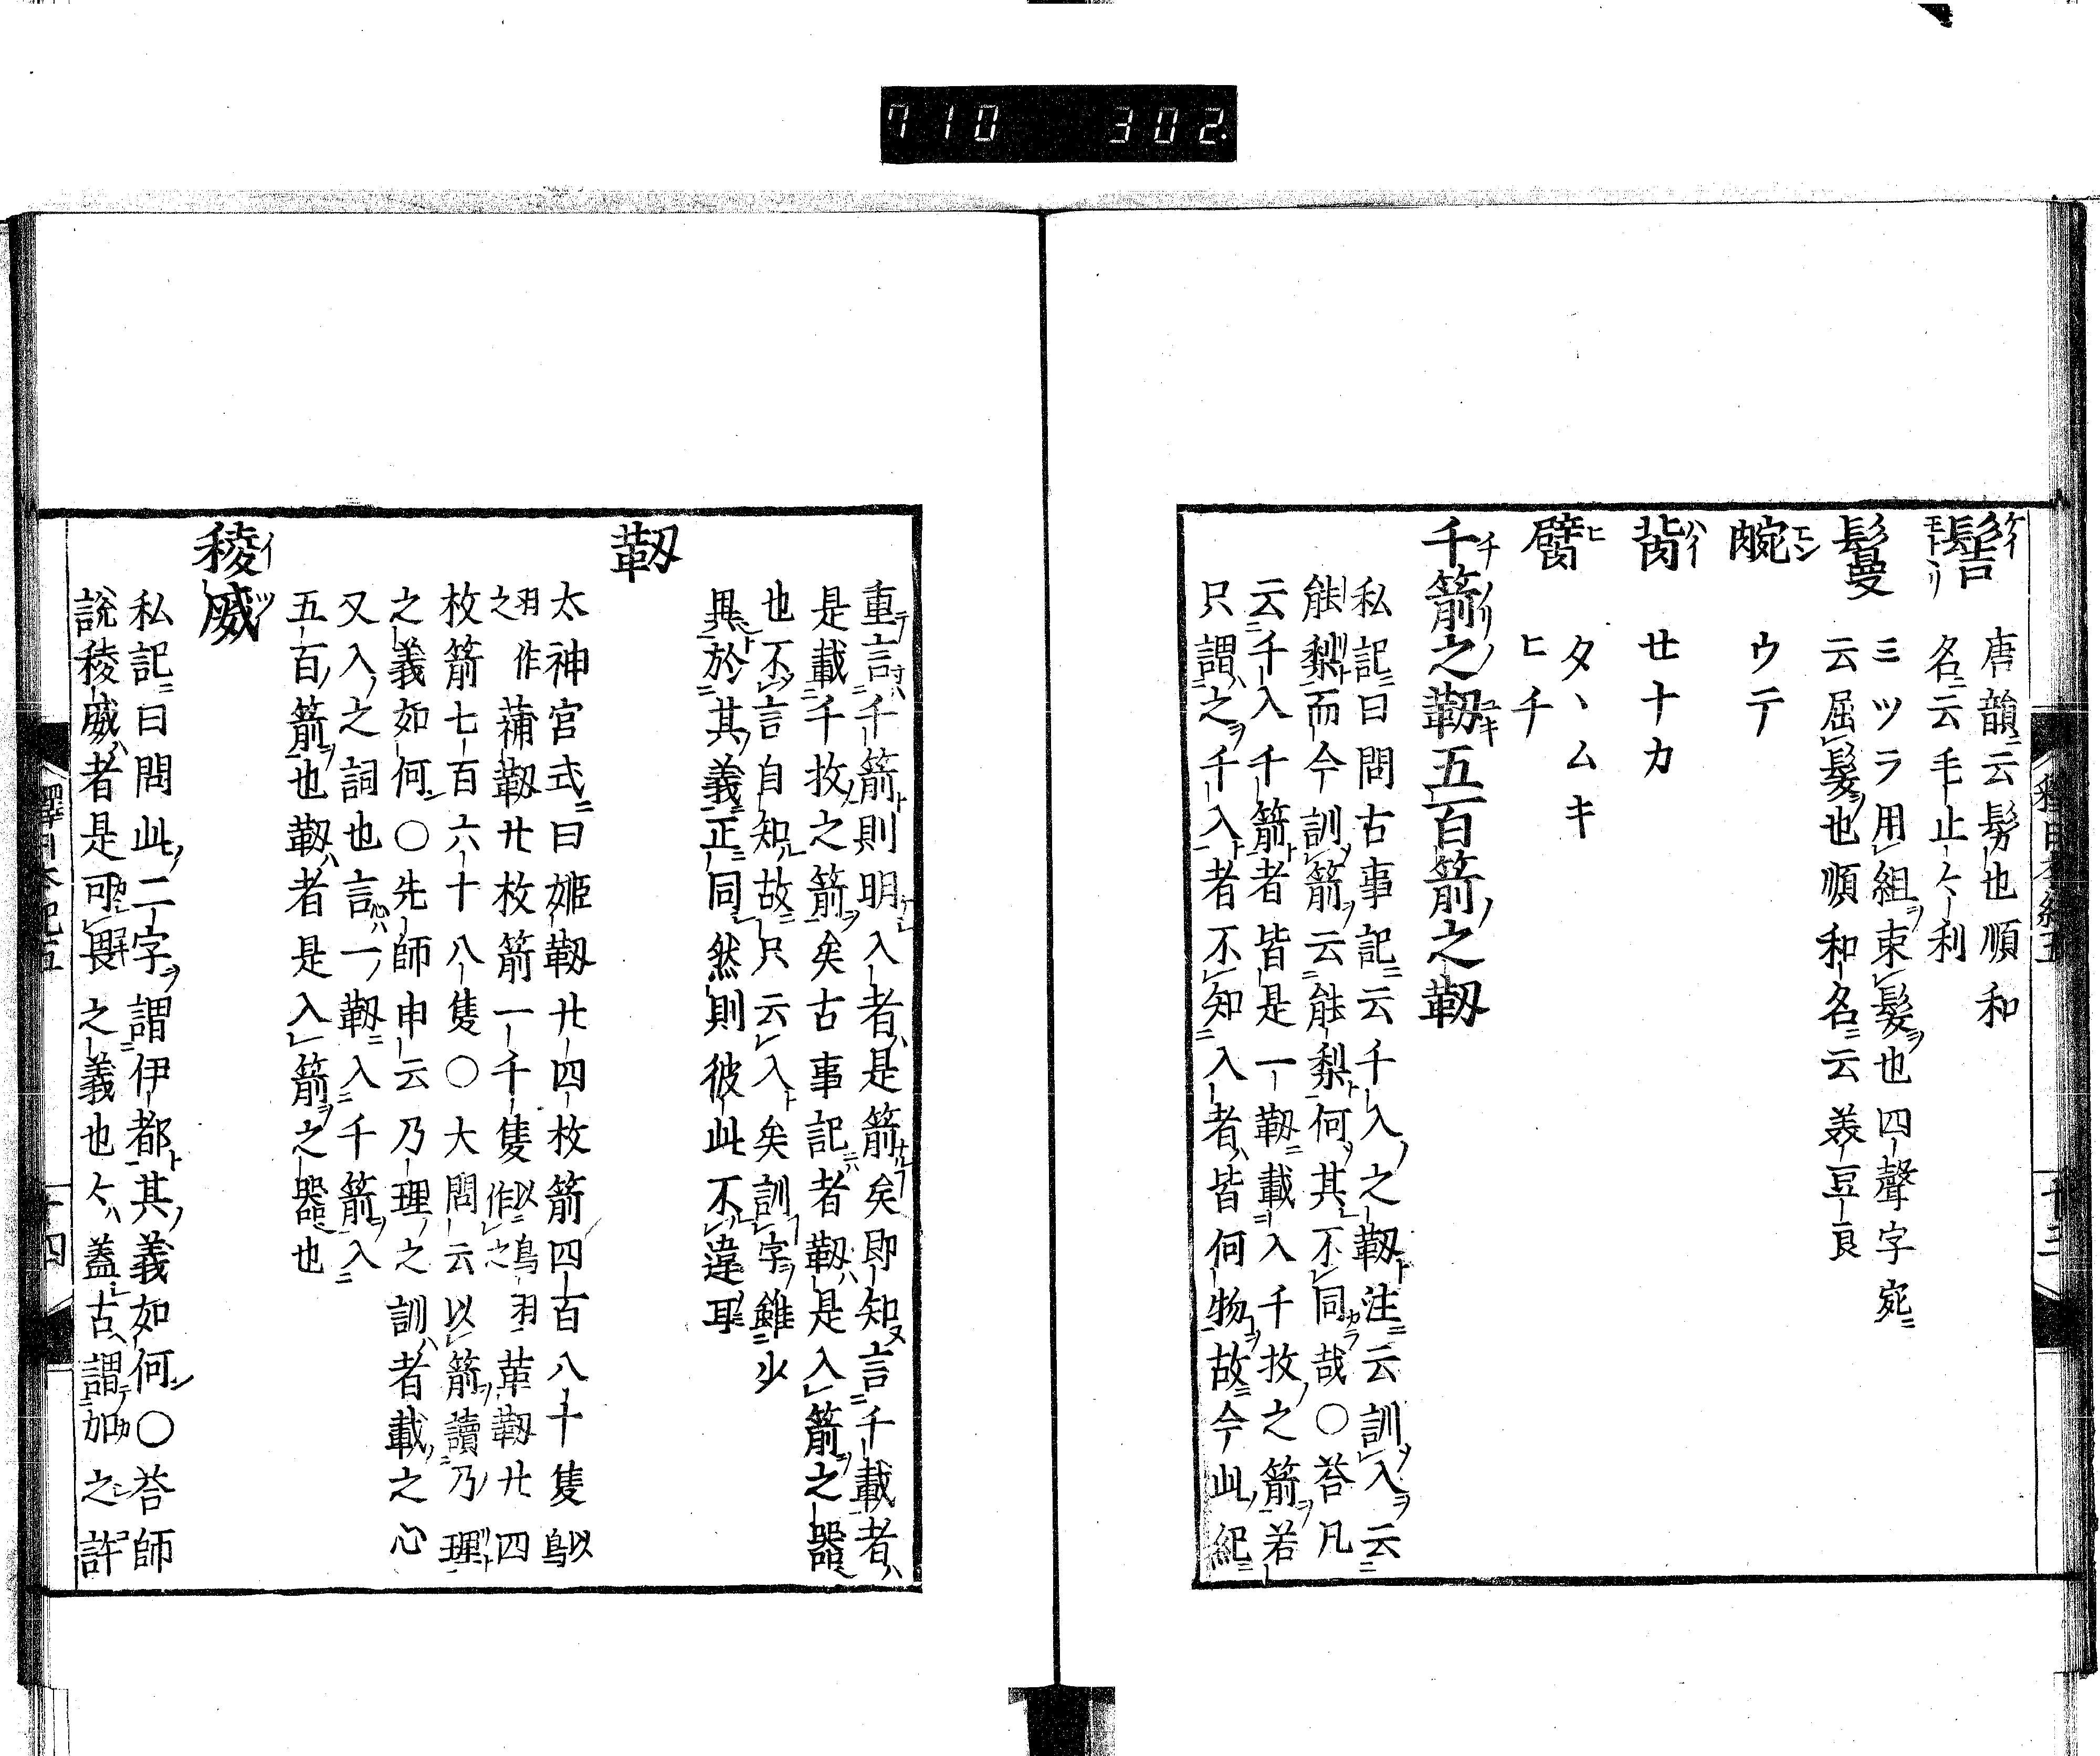 710 302
髻 唐韻云髻也順和
名云毛止々利
鬘 ミツラ用組束髮也四聲字宛
云屈髮也順和名云美豆良
腕 ウテ
背 せナカ
臂 タヽムキ
ヒチ
千箭之靫五百箭之靫
私記曰問古事記云千入之靫注云訓入云
能梨而今訓箭云能梨何其不同哉〇荅凡
云千入千箭者皆是一靫載入千枚之箭若
只謂之千入者不知入者皆何物故今此紀
重言千箭則明入者是箭矣即知言千載者
是載千枚之箭矣古事記者靫是入箭之器
也不言自知故只云入矣訓字雖少
異於其義正同然則彼此不違耳
靫
太神宮式曰姬靫廿四枚箭四百八十隻以鳥
羽作之蒲靫廿枚箭一千隻以鳥羽作之革靫廿四
枚箭七百六十八隻〇大問云以箭讀乃理
之義如何〇先師申云乃理之訓者載之心
又入之詞也言一靫入千箭入
五百箭也靫者是入箭之器也
稜威
私記曰問此二字謂伊都其義如何〇荅師
說稜威者是可畏之義也今蓋古謂加之許